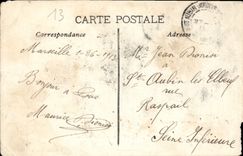 13
CARTE POSTALE
Correspondance
Adresse
Marseille 1-26-1913
Mr Jean
St Aubin les Elbeuf
rue
Raspail
Seine Inférieure
Bonjour à tous
Maurice